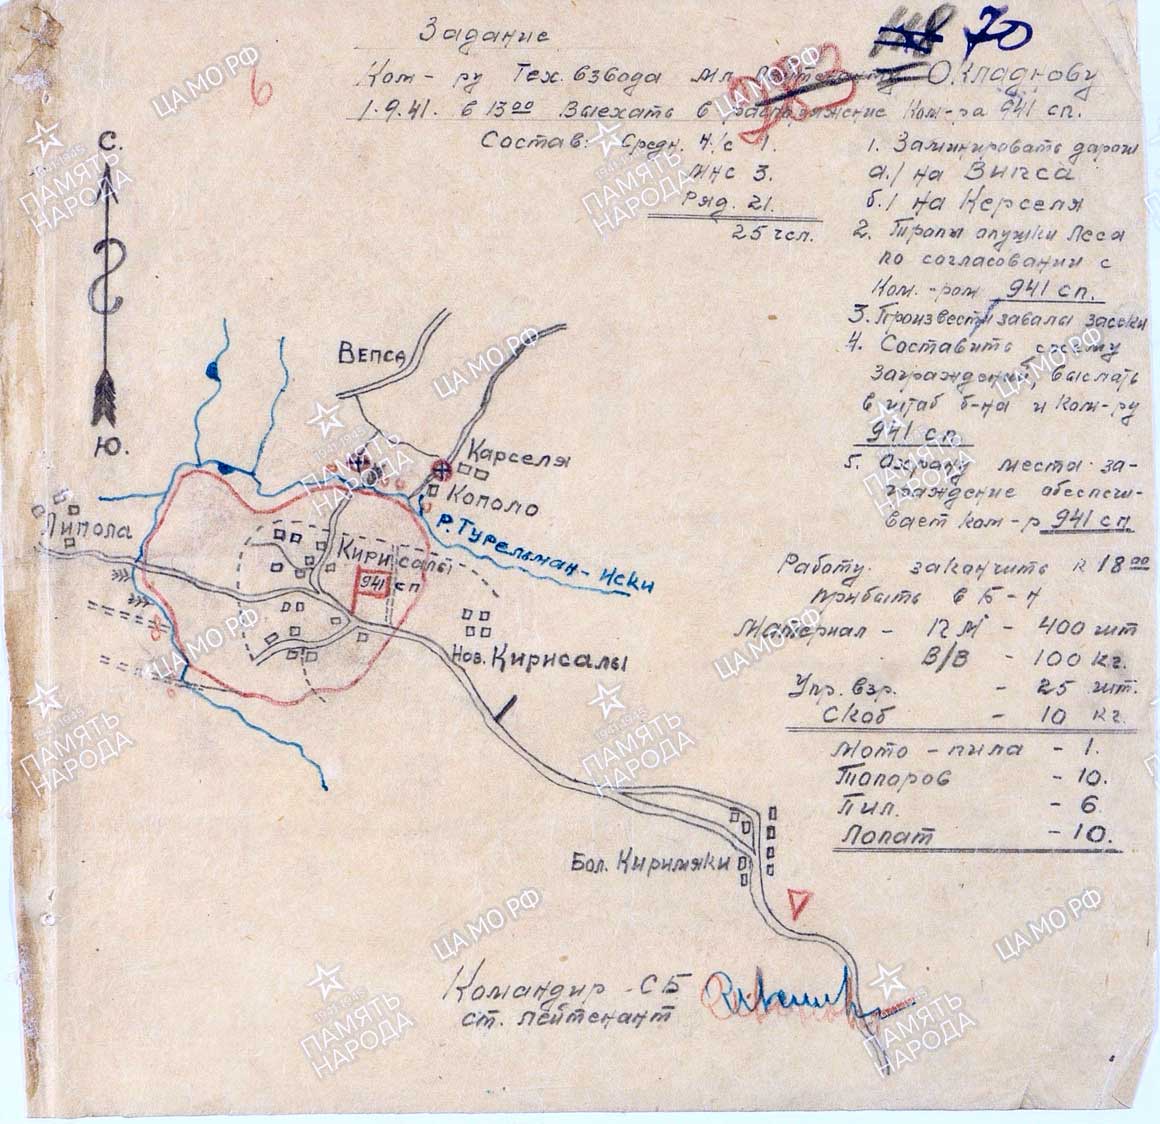 Задание
70
Ком-ру Тех. взвода мл. Лейтенанту О.Кладнову
1.9.41. в 13⁰⁰ Выехать в распоряжение Ком-ра 941 сп.
6
Состав: Средн. н/с 1.
мнс 3.
Ряд. 21.
25 чел.
1. Заминировать дороги
а.) на Випса
б.) на Керселя
2. Тропы опушки леса
по согласовании с
Ком.-ром 941 сп.
3. Произвести завалы засеки
4. Составить схему
заграждений, выслать
в штаб б-на и Ком-ру
941 сп
5. Охрану места за-
граждение обеспечи-
вает ком-р 941 сп.
Работу закончить к 18⁰⁰
прибыть в Б-н
Материал - ПМ - 400 шт
В/В - 100 кг.
Упр. взр. - 25 шт.
Скоб - 10 кг.
Мото-пила - 1.
Топоров - 10.
Пил. - 6
Лопат - 10.
С.
Ю.
Вепса
Карселя
Кополо
р. Турельман-йски
Липола
Кирисалы
941 сп
Нов. Кирисалы
Бол. Киримяки
Командир - СБ
ст. лейтенант
ЦА МО РФ
ПАМЯТЬ НАРОДА
1941-1945